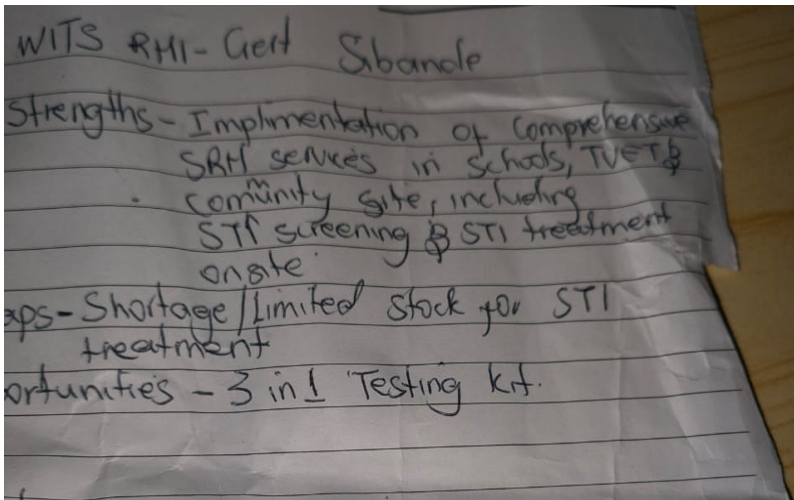 WITS RHI - Gert Sibande
Strengths - Implimentation of Comprehensive
SRH services in Schools, TVET &
community site, including
STI screening & STI treatment
onsite
aps - Shortage/Limited Stock for STI
treatment
ortunities - 3 in 1 Testing kit.